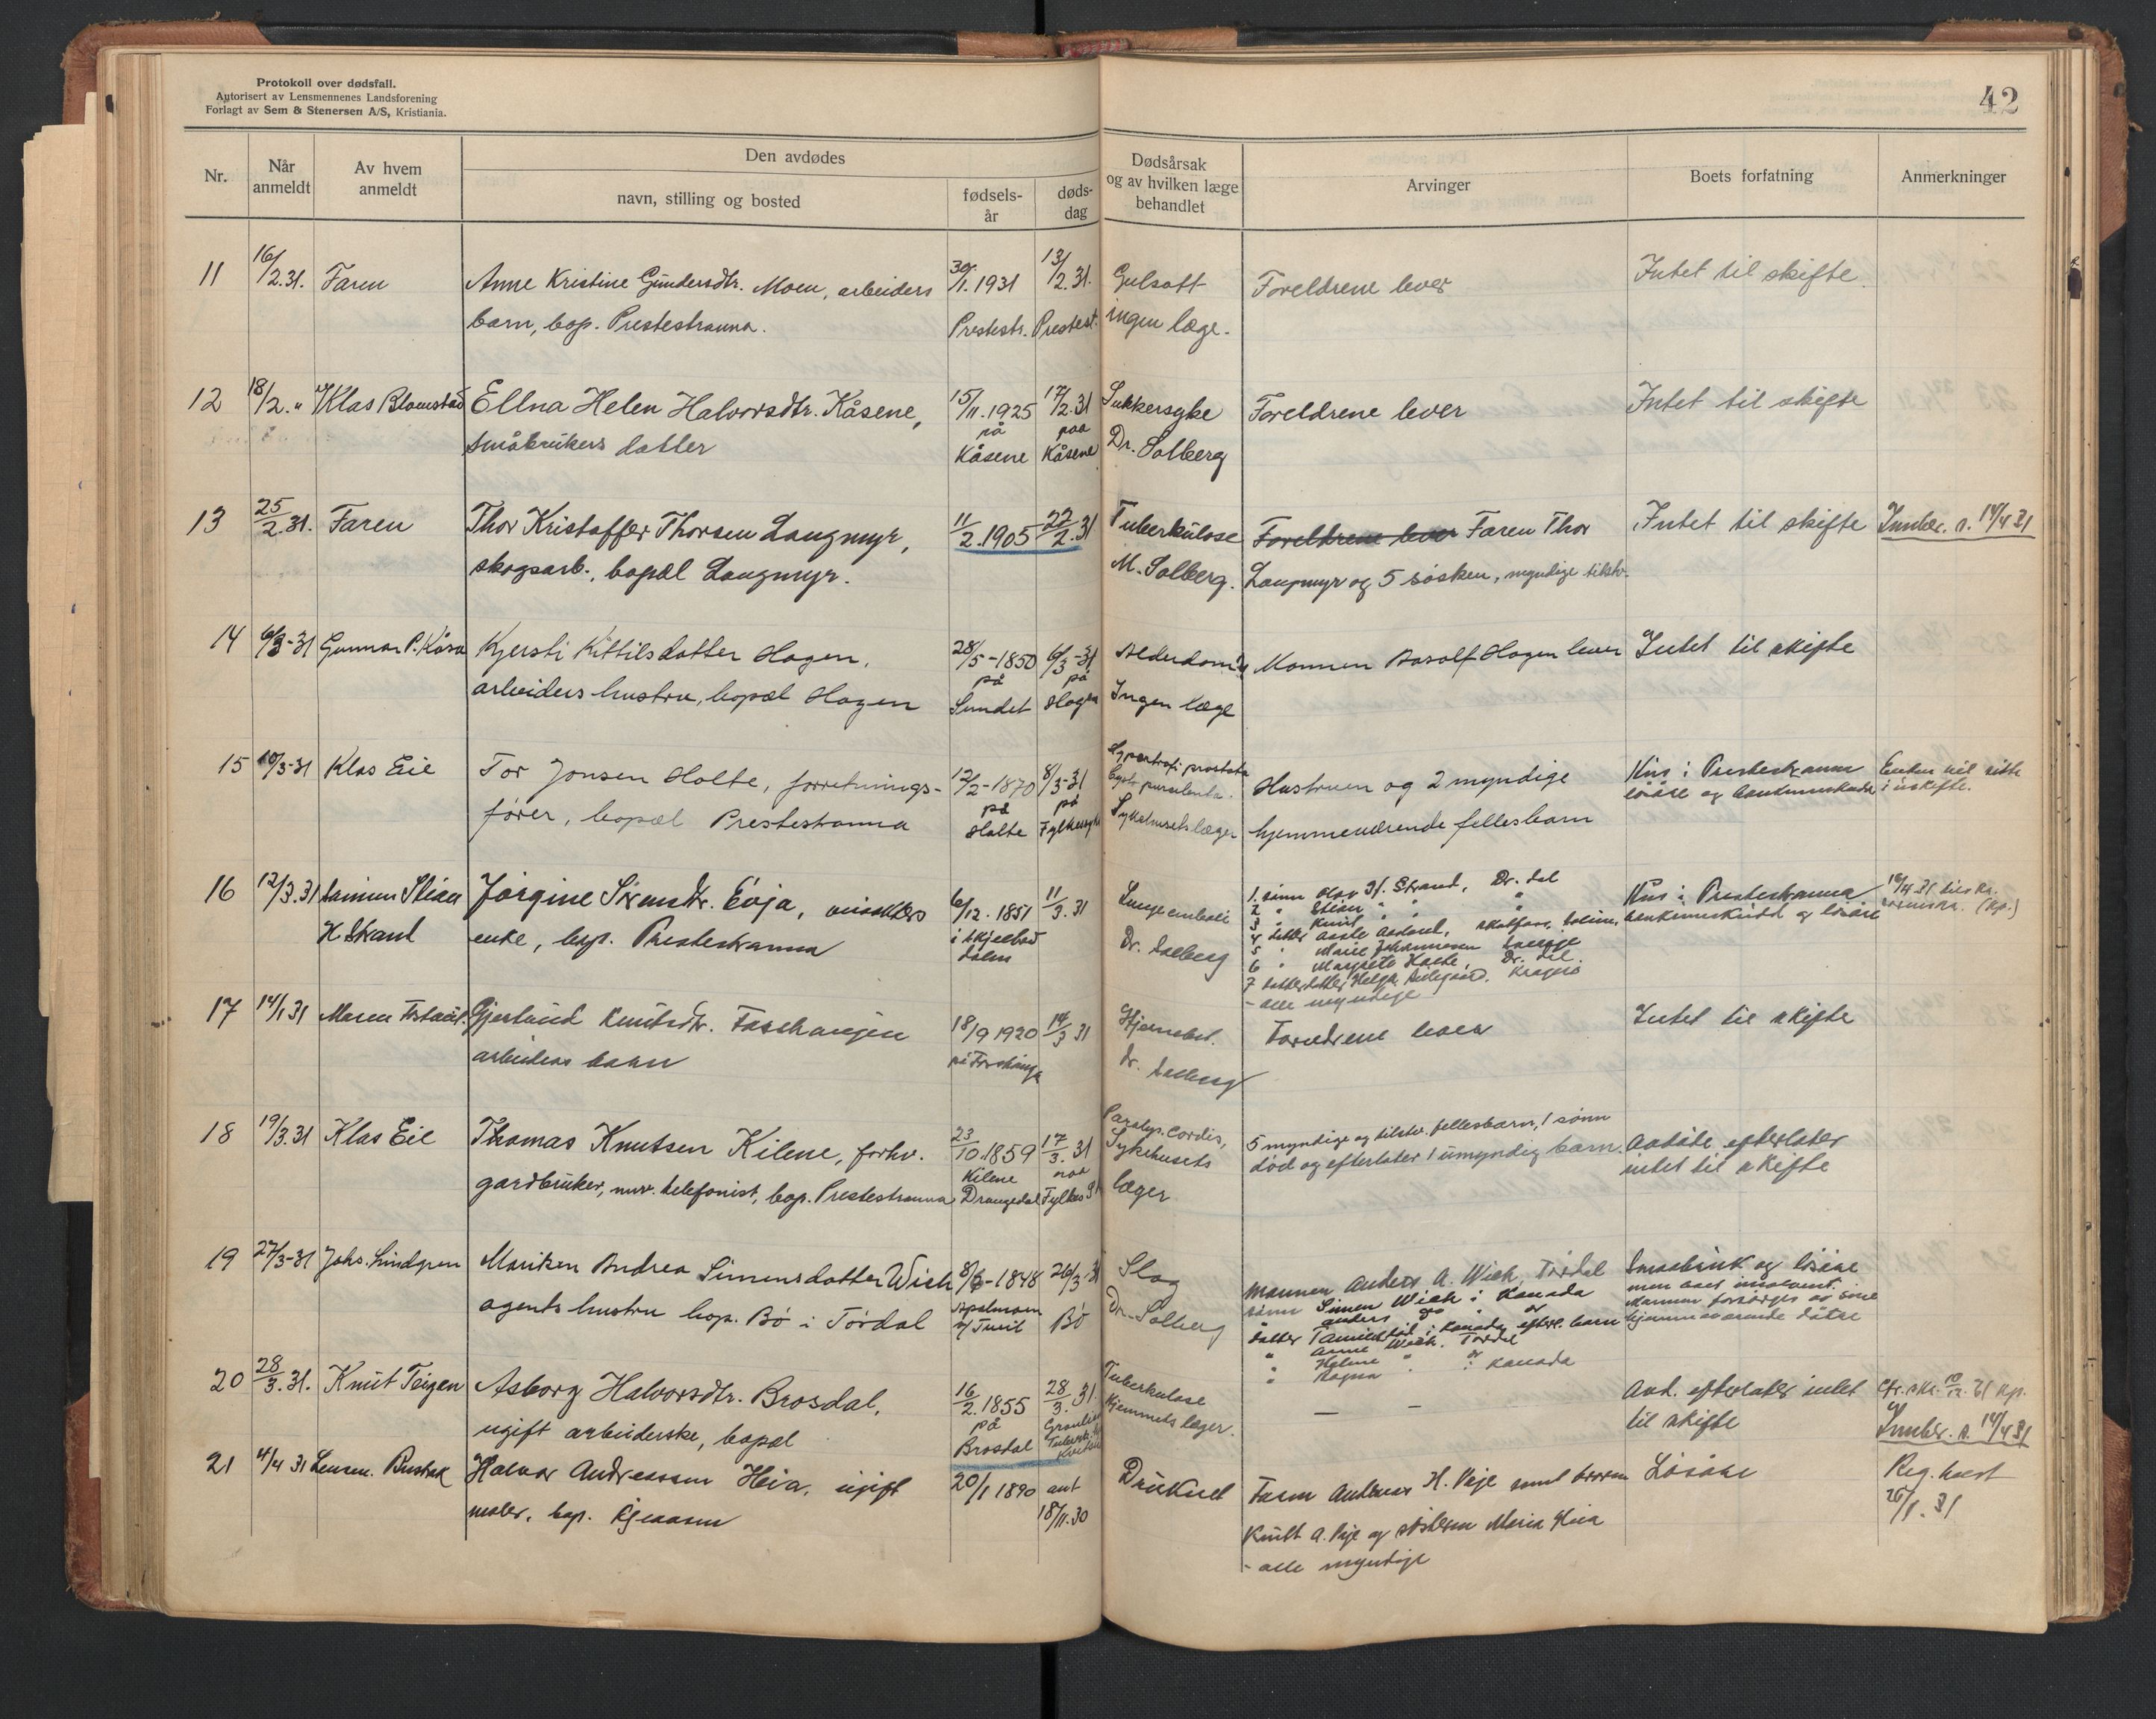 Protokoll over dødsfall.
Autorisert av Lensmennenes Landsforening
Forlagt av Sem & Stenersen A/S, Kristiania.
42
Nr.
Når anmeldt
Av hvem anmeldt
Den avdødes
navn, stilling og bosted
fødsels-år
døds-dag
Dødsårsak og av hvilken læge behandlet
Arvinger
Boets forfatning
Anmerkninger
11 16/2.31. Faren Anne Kristine Gundersdtr. Moen, arbeiders 30/1.1931 13/2.31. Gulsott Foreldrene lever Intet til skifte.
barn, bop. Prestestranna. Prestestr. Prestest. ingen læge.
12 18/2. " Klas Blomstad Ellna Helen Halvorsdtr. Kåsene, 15/11.1925 17/2.31 Sukkersyke Foreldrene lever Intet til skifte
småbrukers datter på Kåsene paa Kåsene Dr. Solberg
13 25/2.31. Faren Thor Kristoffer Thorsen Langmyr, 11/2.1905 22/2.31 Tuberkulose Foreldrene lever Faren Thor Intet til skifte Innber. s. 14/4 31
skogsarb., bopæl Langmyr. M. Solberg. Langmyr og 5 søsken, myndige tilstv.
14 6/3-31 Gunnar P. Kåsa Kjersti Kittilsdatter Hagen, 28/5-1850 6/3-31 Alderdom Mannen Aasolf Hagen lever Intet til skifte
arbeiders hustru, bopæl Hagen på Sundet på Hagen Ingen læge
15 10/3-31 Klas Eie Tor Jonsen Holte, forretnings- 12/2-1870 8/3-31 Hypertrofi prostata Hustruen og 2 myndige Hus i Prestestranna Enken vil sitte
fører, bopæl Prestestranna på Holte på Fylkessyk Cyst. purulenta. Sykehusets læger hjemmeværende fellesbarn løsøre og bankinnskudd i uskifte.
16 12/3.31 Stian Jørgine Sørensdtr. Euja, enke 6/12.1851 11/3.31 Lungeemboli 1. sønn Olav H. Strand, Dr.dal Hus i Prestestranna 14/4 31
H Strand enke, bop. Prestestranna i Skjelbo dalen Dr. Solberg 2 " Stian " " "  bankinnskudd og løsøre
3 " Knut " "
4 datter Aaste
5 " Marie Johannesen
6 " Margrete Holte, Dr. dal.
7 datterdatter Helga Kragerø
- alle myndige
17 14/3 31 Maren Gjertrud Knutsdtr. Foshaugen 18/9 1920 14/3 31 Hjernebet. Foreldrene lever Intet til skifte
arbeiders barn Dr. Solberg
18 19/3.31 Klas Eie Thomas Knutsen Kilene, forhv. 23/10.1859 17/3.31 Paralys. cordis, 5 myndige og tilstv. fellesbarn, 1 sønn Avdøde efterlater
gardbruker, nuv. telefonist, bop. Prestestranna Kilene Drangedal paa Fylkes Sykehusets læger død og efterlater 1 umyndig barn. intet til skifte
19 27/3-31 Johs. Lindgren Mariken Andrea Simensdatter Wiek 8/6-1848 26/3-31 Slag Mannen Anders A. Wiek, Tørdal Smaabruk og løsøre
agents hustru bop. Bø i Tørdal Bø Dr. Solberg sønn Simen Wiek i Kanada men boet insolvent.
" Anders do " do Mannen forsørges av sine
datter i Kanada, efterl. barn hjemmeværende døtre
" Anne Wiek. Tørdal
" Helene " do
" Ragna " i Kanada
20 28/3.31. Knut Teigen Asborg Halvorsdtr. Brosdal, 16/2.1855 28/3.31. Tuberkulose — — Avd. efterlater intet
ugift arbeiderske, bopæl på Brosdal Hjemmets læger. til skifte Innber. s. 14/4 31
21 4/4 31 Lensm. Halvor Andreassen Heia, ugift 20/1 1890 ant 18/11.30 Druknet Faren Andreas H. Veje samt broren Løsøre Reg. holdt
maler, bop. Knut A. Veje og søsteren Maria Heia 20/1.31
- alle myndige